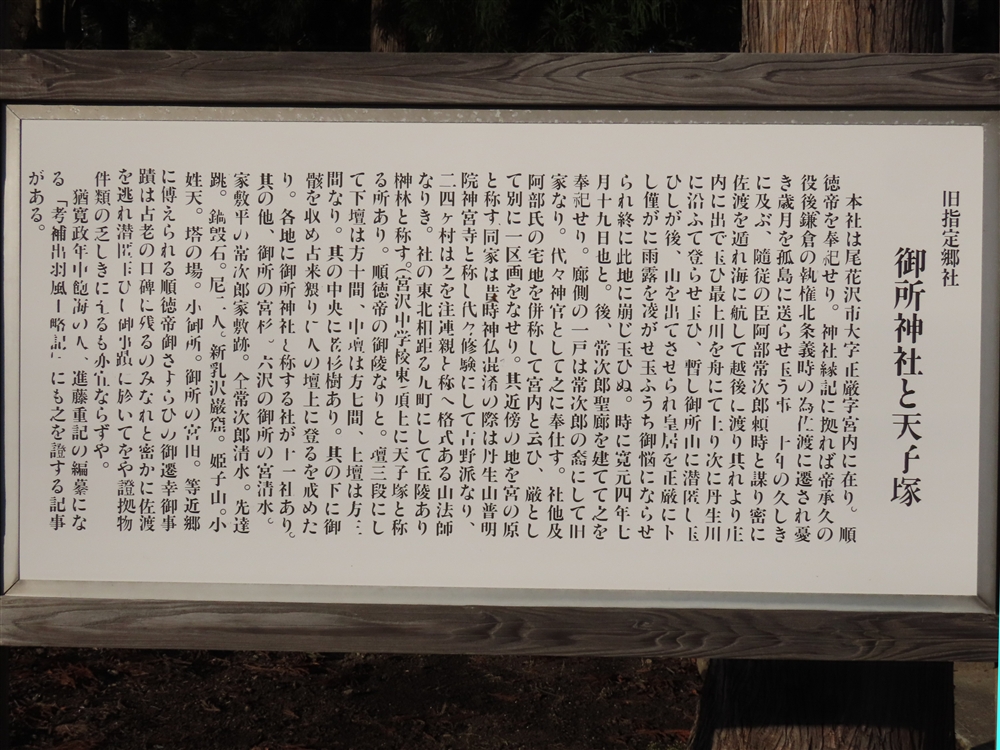 旧指定郷社
御所神社と天子塚
本社は尾花沢市大字正厳字宮内に在り。順
徳帝を奉祀せり。神社縁記に拠れば帝承久の
役後鎌倉の執権北条義時の為佐渡に遷され憂
き歳月を孤島に送らせ玉う事、十年の久しき
に及ぶ、随従の臣阿部常次郎頼時と謀り密に
佐渡を遁れ海に航して越後に渡り其れより庄
内に出で玉ひ最上川を舟にて上り次に丹生川
に沿ふて登らせ玉ひ、暫し御所山に潜匿し玉
ひしが後、山を出てさせられ皇居を正厳に卜
し僅がに雨露を凌がせ玉ふうち御悩にならせ
られ終に此地に崩じ玉ひぬ。時に寛元四年七
月十九日也と。後、常次郎聖廊を建てて之を
奉祀せり。廊側の一戸は常次郎の裔にして旧
家なり。代々神官として之に奉仕す。社他及
阿部氏の宅地を併称して宮内と云ひ、厳とし
て別に一区画をなせり。其近傍の地を宮の原
と称す同家は昔時神仏混淆の際は丹生山普明
院神宮寺と称し代々修験にして吉野派なり、
二四ヶ村は之を注連親と称へ格式ある山法師
なりき。社の東北相距る九町にして丘陵あり
榊林と称す。(宮沢中学校東)頂上に天子塚と称
る所あり。順徳帝の御陵なりと。壇三段にし
て下壇は方十間、中壇は方七間、上壇は方三
間なり。其の中央に老杉樹あり。其の下に御
骸を収め古来猥りに人の壇上に登るを戒めた
り。各地に御所神社と称する社が十一社あり。
其の他、御所の宮杉。六沢の御所の宮清水。
家敷平の常次郎家敷跡。仝常次郎清水。先達
跳。鍋毀石。尼二人。新乳沢巌窟。姫子山。小
姓天。塔の場。小御所。御所の宮田。等近郷
に博えられる順徳帝御さすらひの御遷幸御事
蹟は古老の口碑に残るのみなれと密かに佐渡
を逃れ潜匿玉ひし御事蹟に於いてをや證拠物
件類の乏しきに至るも亦宜ならずや。
猶寛政年中飽海の人、進藤重記の編纂にな
る「考補出羽風土略記」にも之を證する記事
がある。